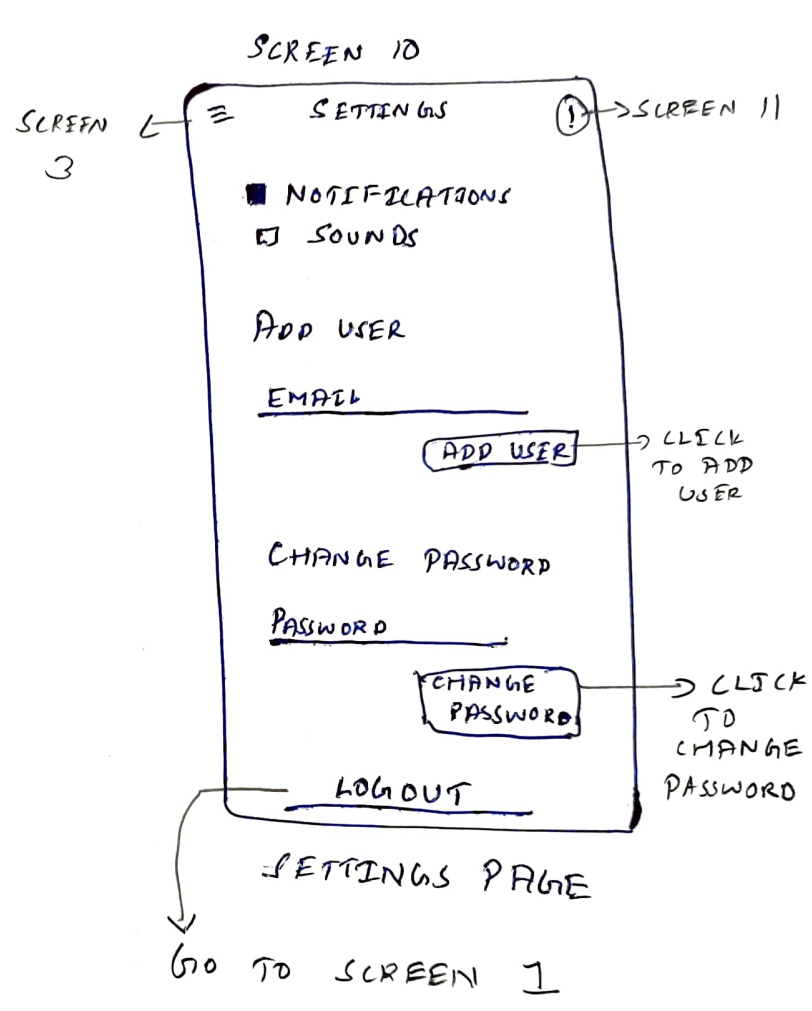 SCREEN 10
SETTINGS
!
SCREEN 11
SCREEN
3
NOTIFICATIONS
SOUNDS
ADD USER
EMAIL
ADD USER
CLICK
TO ADD
USER
CHANGE PASSWORD
PASSWORD
CHANGE
PASSWORD
CLICK
TO
CHANGE
PASSWORD
LOGOUT
SETTINGS PAGE
GO TO SCREEN 1